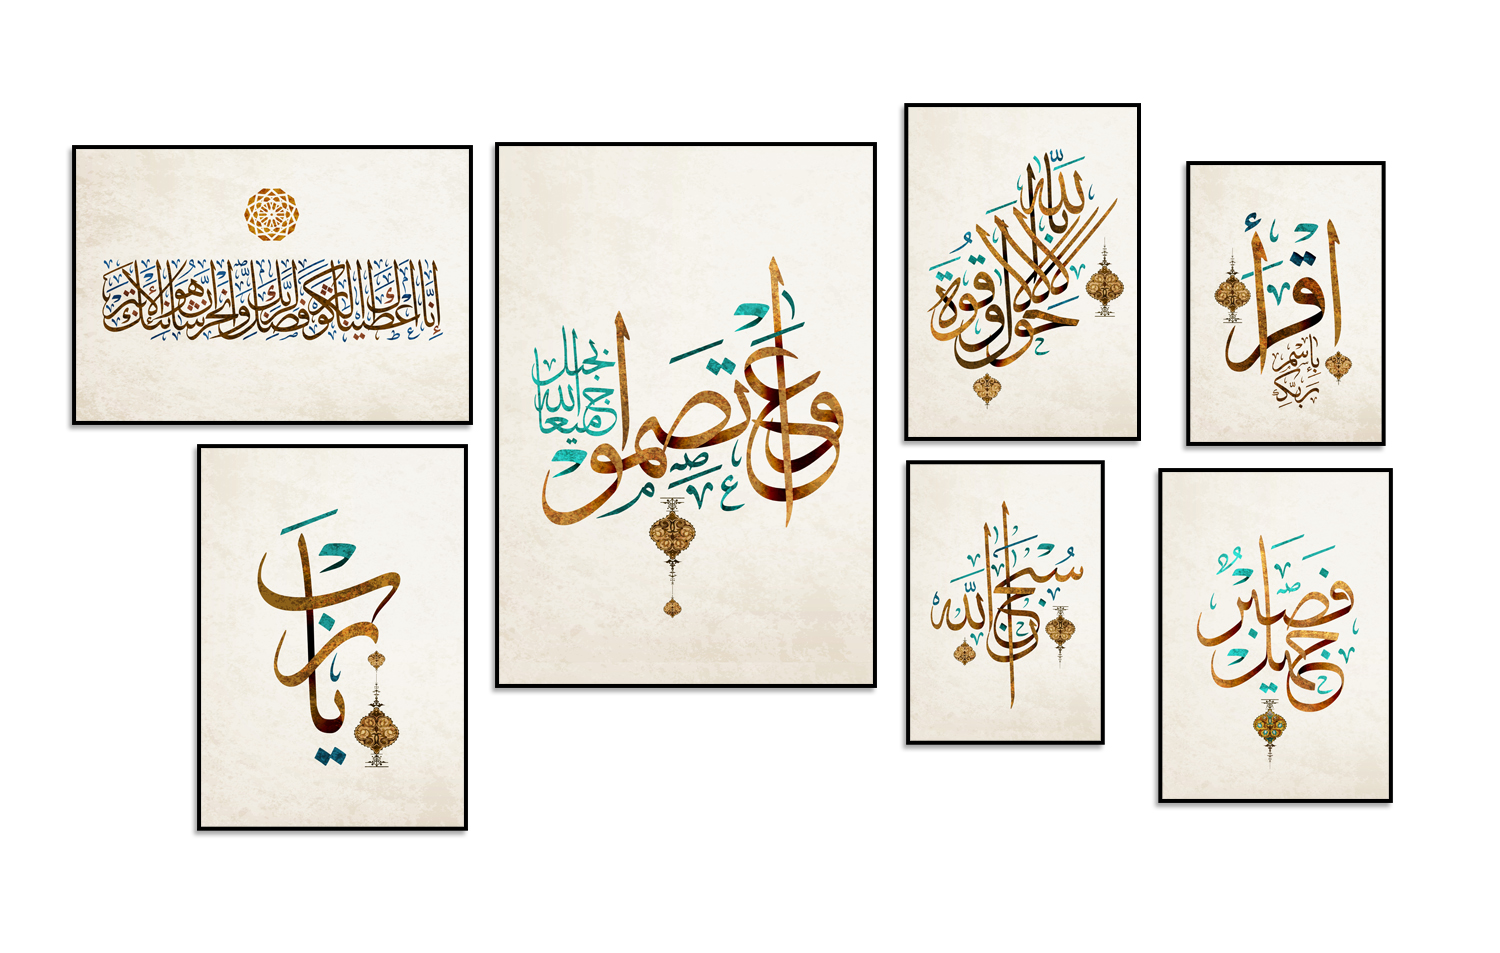 إنا أعطيناك الكوثر فصل لربك وانحر إن شانئك هو الأبتر
واعتصموا
بحبل
الله
جميعا
لا حول ولا قوة
إلا بالله
اقرأ
باسم
ربك
يا رب
سبحان الله
فصبر
جميل